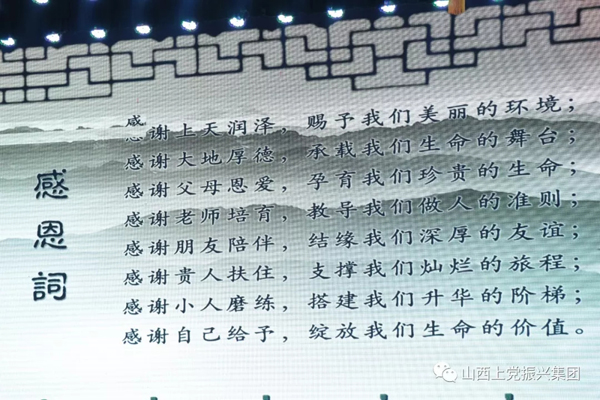 感恩詞
感谢上天润泽，赐予我们美丽的环境；
感谢大地厚德，承载我们生命的舞台；
感谢父母恩爱，孕育我们珍贵的生命；
感谢老师培育，教导我们做人的准则；
感谢朋友陪伴，结缘我们深厚的友谊；
感谢贵人扶住，支撑我们灿烂的旅程；
感谢小人磨练，搭建我们升华的阶梯；
感谢自己给予，绽放我们生命的价值。
山西上党振兴集团